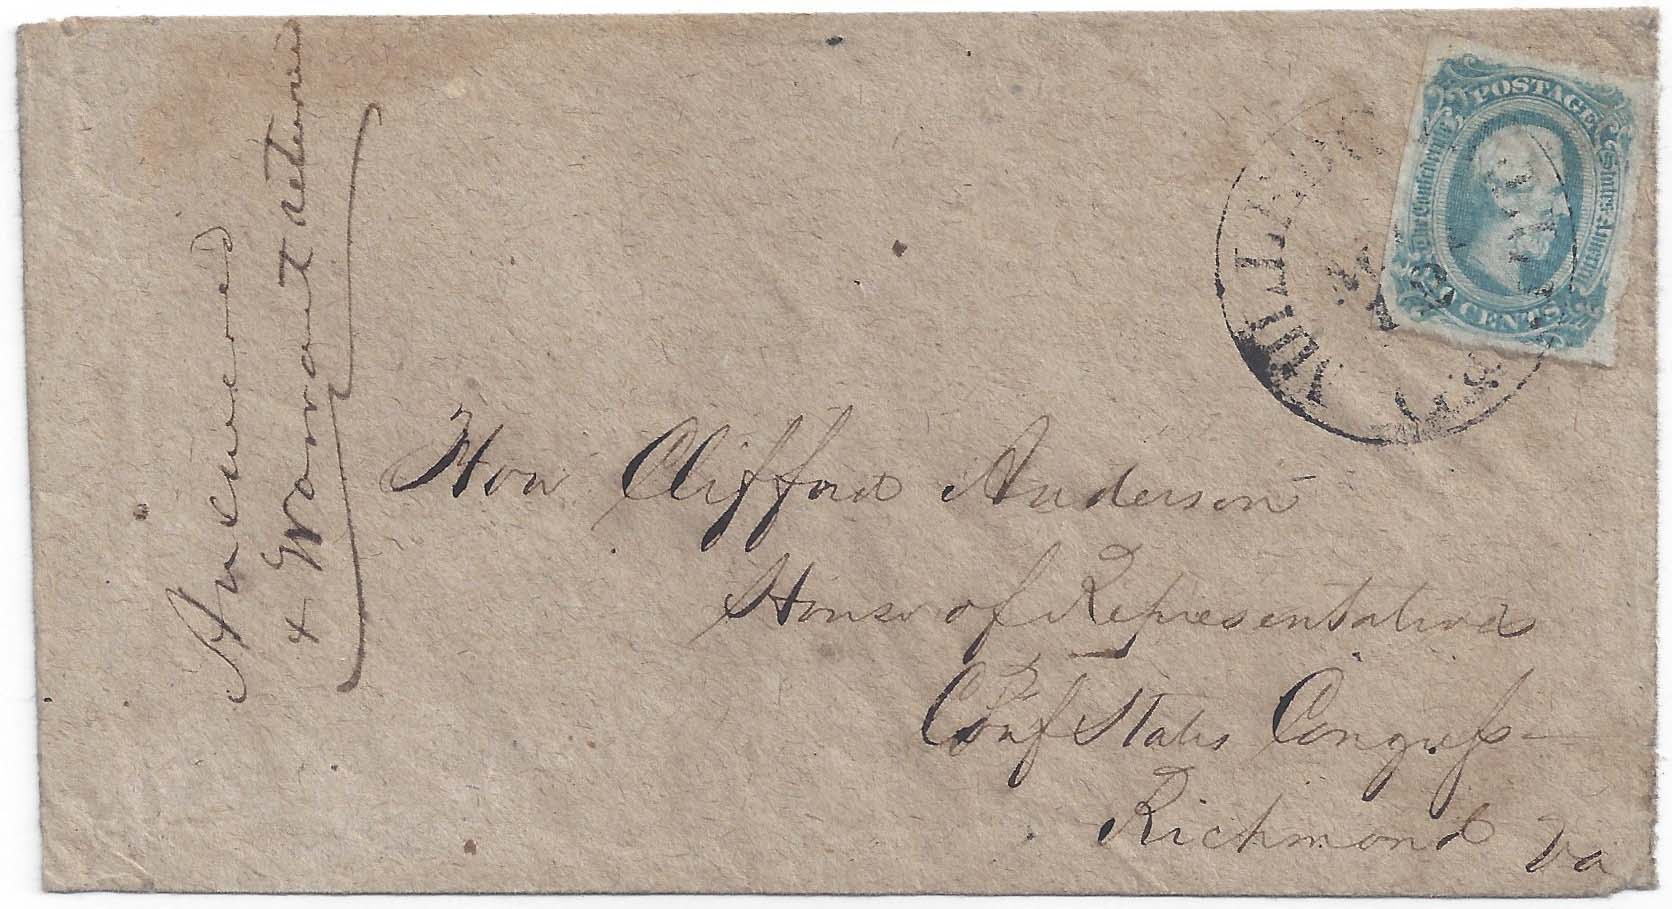 Answered
& Warrant
Hon Clifford Anderson
House of Representatives
Conf States Congress
Richmond Va
POSTAGE
The Confederate
States of America
CENTS